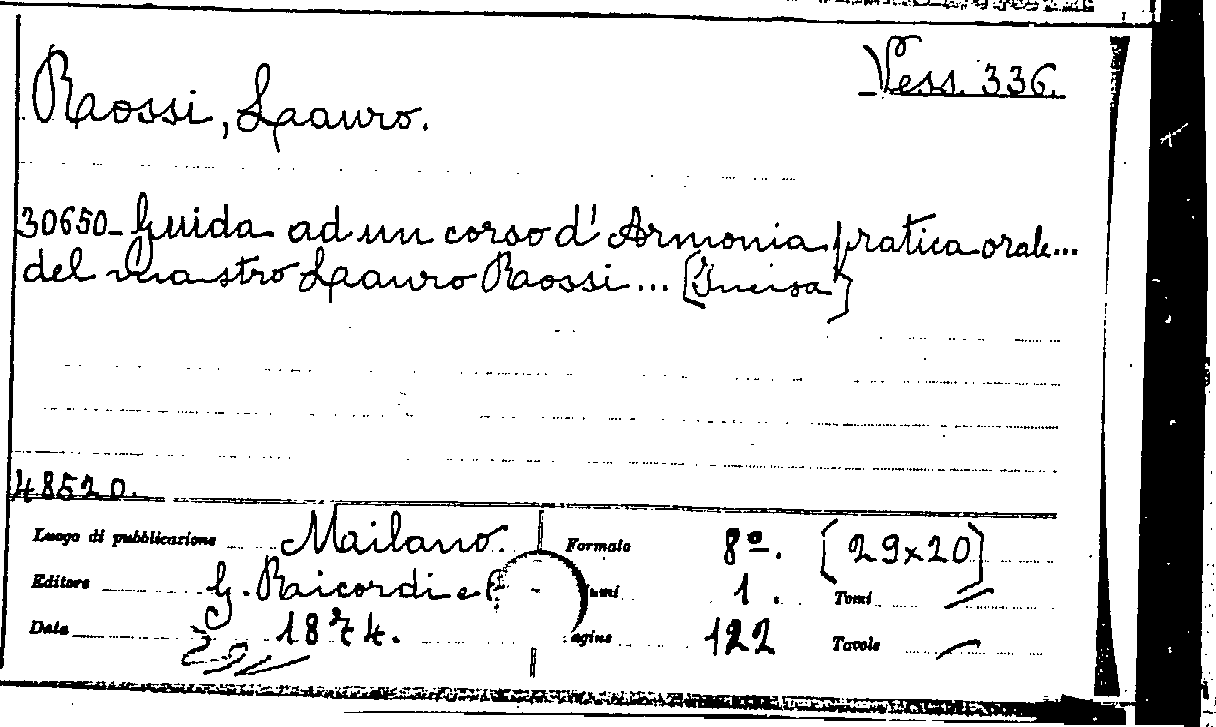 Vess. 336.
Rossi, Lauro.
30650_ Guida ad un corso d'Armonia pratica orale...
del mastro Lauro Rossi... [Incisa]
48520.
Luogo di pubblicazione Milano. Formato 8º. [29x20]
Editore G. Ricordi e 1. Tomi
Data 1874. 122 Tavole